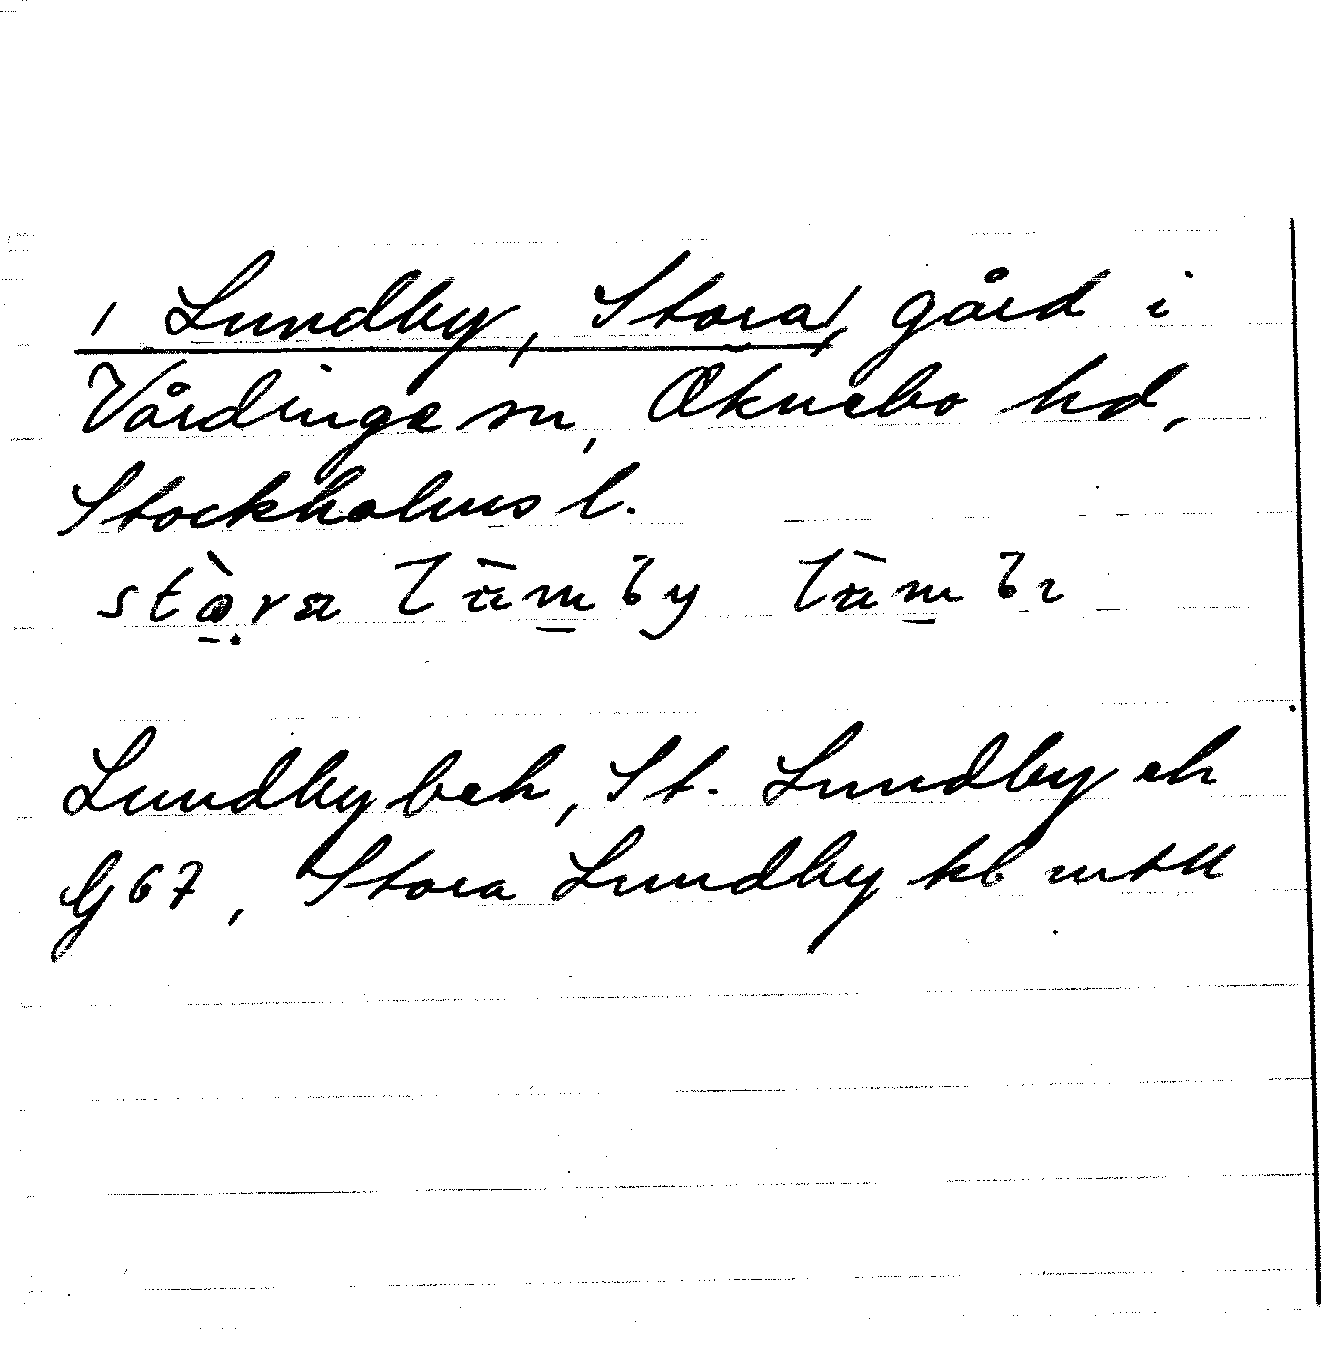 / Lundby, Stora/, gård i
Vårdinge sn, Öknebo hd,
Stockholms l.
stɷ̀ra
Lundby beh, St. Lundby eh
G67, Stora Lundby kb mtll